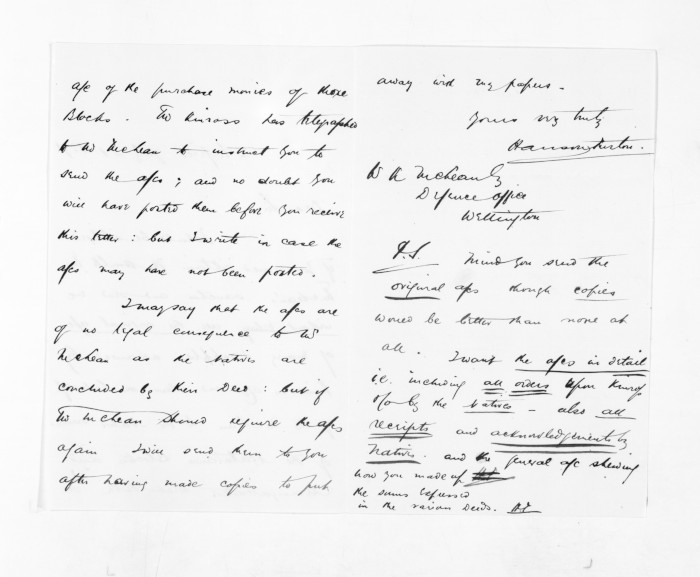 a/c of the purchase monies of those
Blocks. Mr Kinross has telegraphed
to Mr McLean to instruct you to
send the a/cs; and no doubt you
will have posted them before you receive
this letter: but I write in case the
a/cs may have not been posted.
I may say that the a/cs are
of no legal consequence to Mr
McLean as the Natives are
concluded by their Deed: but if
Mr McLean should require the a/cs
again I will send them to you
after having made copies to put
away with my papers.
Yours very truly
Hanson Turton.
McLean Esq
Defence Office
Wellington
P.S. Mind you send the
original a/cs though copies
would be better than none at
all. I want the a/cs in detail
i.e. including all orders upon Kinross
by the Natives - also all
receipts and acknowledgements by
Natives. and general a/c shewing
how you made up
the sums expressed
in the various Deeds.